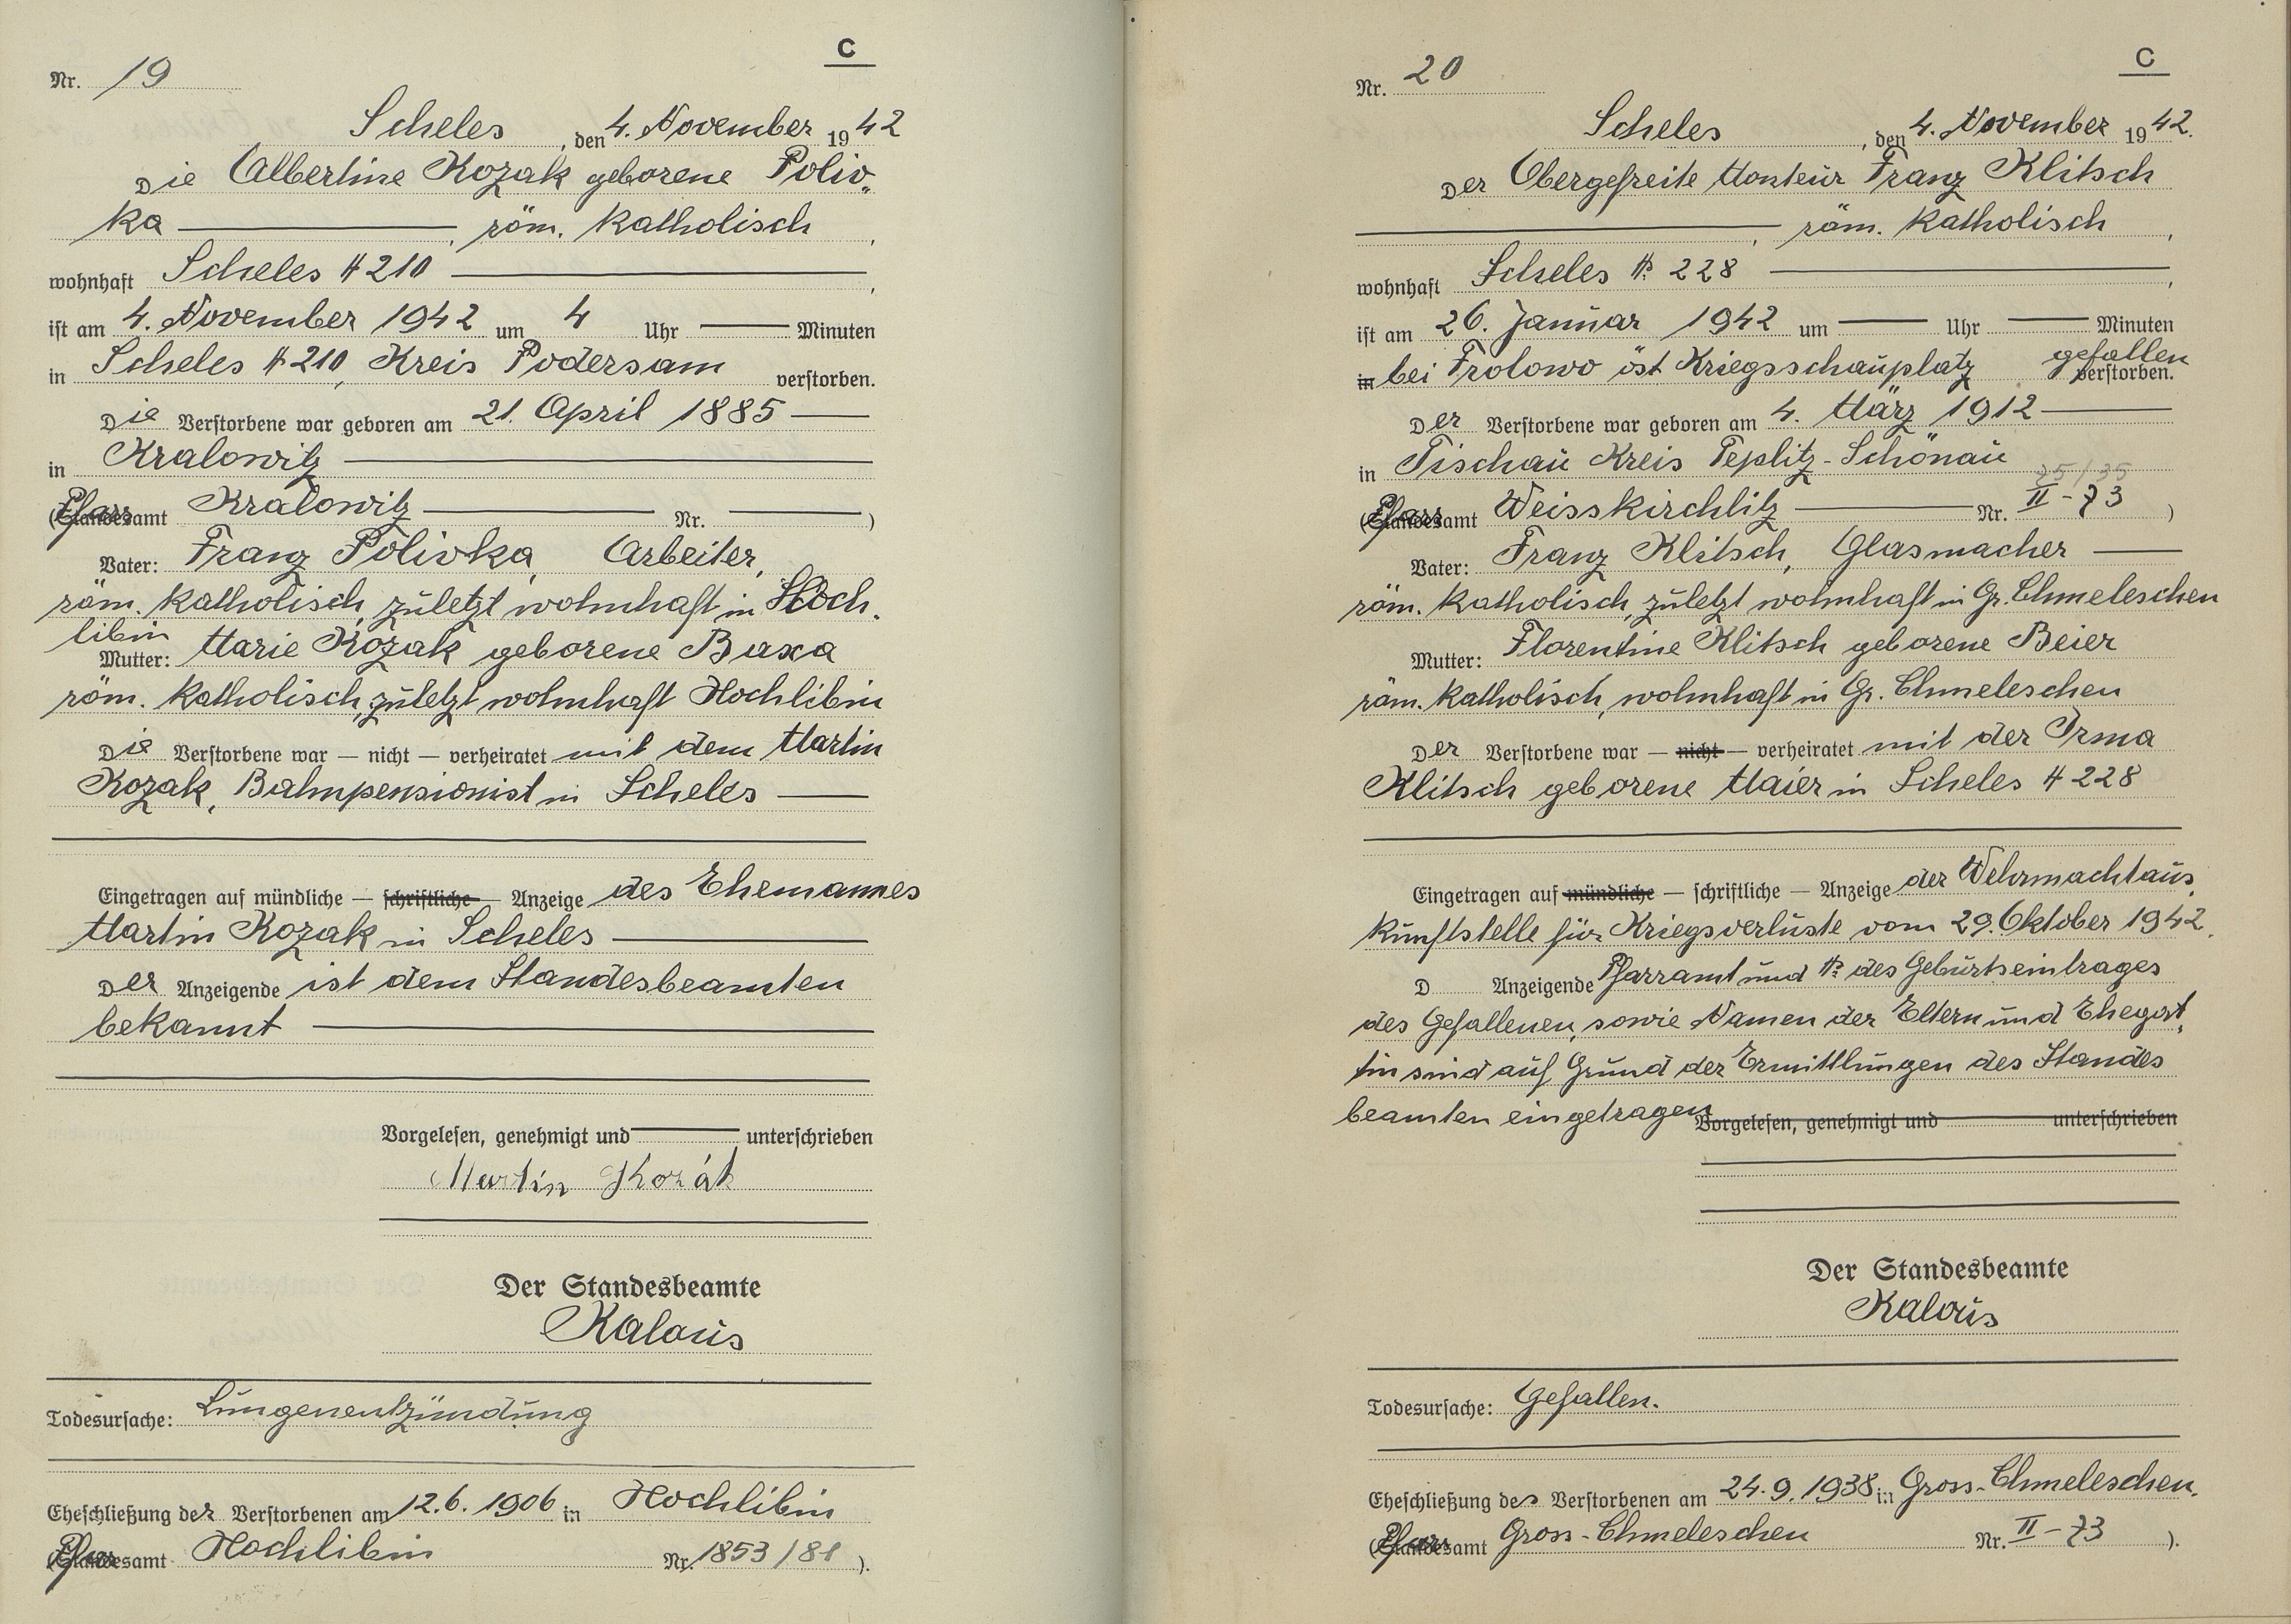 C
Nr. 19
Scheles, den 4. November 1942
Die Albertine Kozak geborene Poliv„
ka ———, röm. katholisch,
wohnhaft Scheles # 210 ———,
ist am 4. November 1942 um 4 Uhr ——— Minuten
in Scheles # 210, Kreis Podersam verstorben.
Die Verstorbene war geboren am 21. April 1885 ———
in Kralowitz ———
(Pfarramt Kralowitz ——— Nr. ———)
Vater: Franz Polivka, Arbeiter,
röm. katholisch, zuletzt wohnhaft in Hoch.
libin
Mutter: Marie Kozak geborene Buxa
röm. katholisch, zuletzt wohnhaft Hochlibin
Die Verstorbene war — nicht — verheiratet mit dem Martin
Kozak, Bahnpensionist in Scheles ———
Eingetragen auf mündliche — schriftliche — Anzeige des Ehemannes
Martin Kozak in Scheles ———
Der Anzeigende ist dem Standesbeamten
bekannt ———
Vorgelesen, genehmigt und ——— unterschrieben
Martin Kozák
Der Standesbeamte
Kalous
Todesursache: Lungenentzündung
Eheschließung der Verstorbenen am 12.6.1906 in Hochlibin
(Pfarramt Hochlibin Nr. 1853/81).
C
Nr. 20
Scheles, den 4. November 1942.
Der Obergefreite Monteur Franz Klitsch
———, röm. katholisch,
wohnhaft Scheles № 228 ———,
ist am 26. Januar 1942 um ——— Uhr ——— Minuten
gefallen
in bei Frolowo öst Kriegsschauplatz verstorben.
Der Verstorbene war geboren am 4. März 1912 ———
in Tischau Kreis Teplitz-Schönau
25/35
(Pfarramt Weisskirchlitz ——— Nr. II-73)
Vater: Franz Klitsch, Glasmacher ———
röm. katholisch, zuletzt wohnhaft in Gr. Chmeleschen
Mutter: Florentine Klitsch geborene Beier
röm. katholisch, wohnhaft in Gr. Chmeleschen
Der Verstorbene war — nicht — verheiratet mit der Irma
Klitsch geborene Maier in Scheles # 228
Eingetragen auf mündliche — schriftliche — Anzeige der Wehrmachtaus„
kunftstelle für Kriegsverluste vom 29. Oktober 1942.
D Anzeigende Pfarramt und № des Geburtseintrages
des Gefallenen, sowie Namen der Eltern und Ehegat„
tin sind auf Grund der Ermittlungen des Standes
beamten eingetragen
Vorgelesen, genehmigt und ——— unterschrieben
Der Standesbeamte
Kalous
Todesursache: Gefallen.
Eheschließung des Verstorbenen am 24.9.1938 in Gross-Chmeleschen.
(Pfarramt Gross-Chmeleschen Nr. II-73).